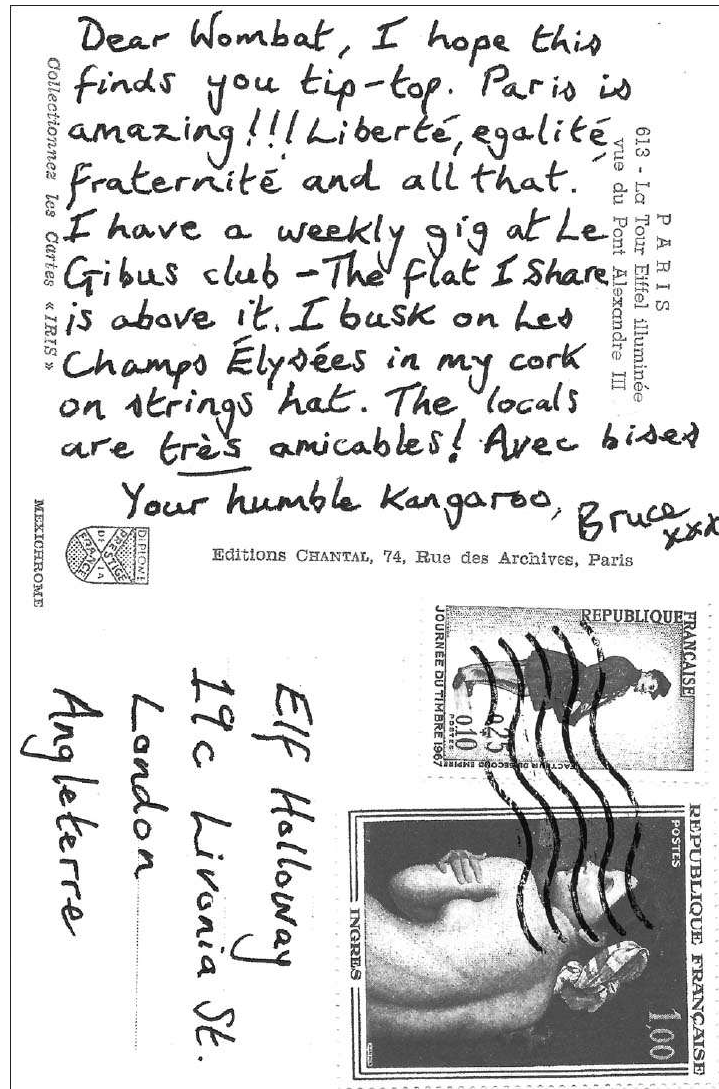 Dear Wombat, I hope this
finds you tip-top. Paris is
amazing!!! Liberté, egalité,
fraternité and all that.
I have a weekly gig at Le
Gibus club - The flat I share
is above it. I busk on Les
Champs Élysées in my cork
on strings hat. The locals
are très amicables! Avec bises
Your humble Kangaroo,
Bruce xxx
PARIS
613 - La Tour Eiffel illuminée
vue du Pont Alexandre III
Collectionnez les Cartes « IRIS »
MEXICHROME
DIPLOME
PRESTIGE
DE LA
FRANCE
Editions CHANTAL, 74, Rue des Archives, Paris
Elf Holloway
19c Livonia St.
London
Angleterre
REPUBLIQUE FRANÇAISE
0,25
0,10
POSTES
FACTEUR DU SECOND EMPIRE
JOURNÉE DU TIMBRE 1967
REPUBLIQUE FRANÇAISE
POSTES
1,00
INGRES